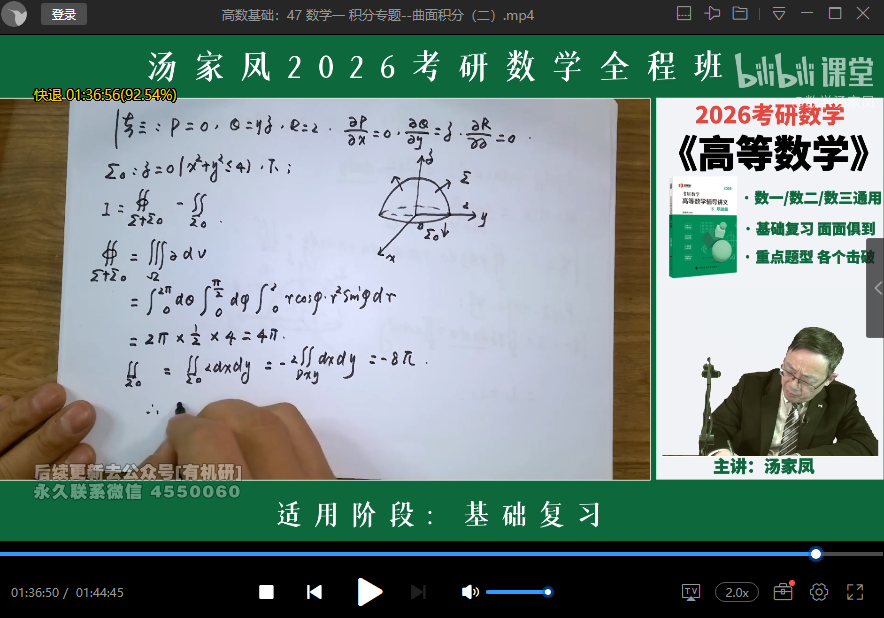 登录
高数基础：47 数学一 积分专题--曲面积分（二）.mp4
汤家凤2026考研数学全程班
bilibili课堂
快退 01:36:56(92.54%)
P=0, Q=yz, R=2. ∂P/∂x=0, ∂Q/∂y=z, ∂R/∂z=0.
Σ₀: z=0 (x²+y²≤4), 下;
I = ∯Σ+Σ₀ - ∬Σ₀.
∯Σ+Σ₀ = ∭Ω z dv
= ∫₀^2π dθ ∫₀^π/2 dφ ∫₀² rcosφ·r²sinφdr
= 2π × 1/2 × 4 = 4π.
∬Σ₀ = ∬Σ₀ 2dxdy = -2∬Dxy dxdy = -8π.
∴
z
Σ
2
y
0
Σ₀
x
2026考研数学
《高等数学》
高等数学辅导讲义
·数一/数二/数三通用
·基础复习 面面俱到
·重点题型 各个击破
主讲：汤家凤
后续更新去公众号[有机研]
永久联系微信 4550060
适用阶段：基础复习
01:36:50 / 01:44:45
TV
2.0x